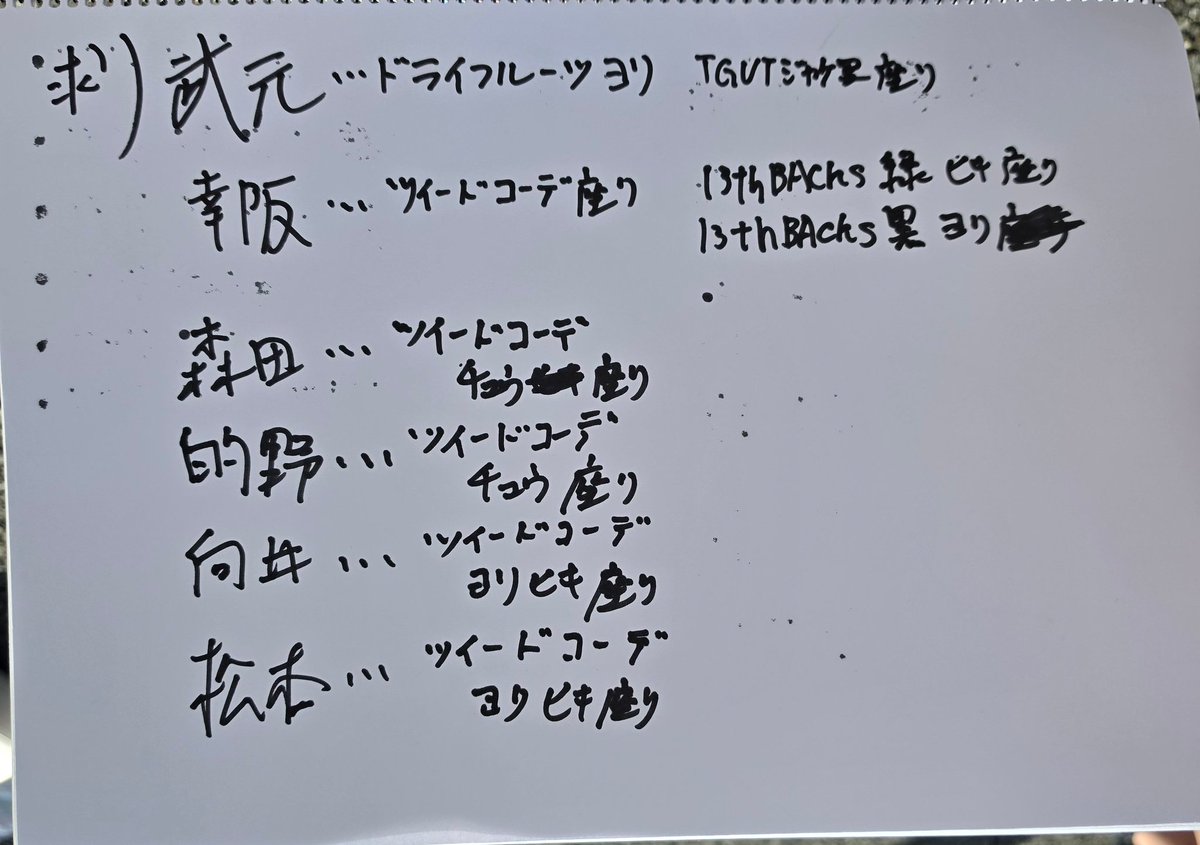 求) 武元…ドライフルーツ ヨリ TGUT 黒 座り
幸阪…ツイードコーデ座り 13thBACKS 緑 ヒキ 座り
13thBACKS 黒 ヨリ
森田…ツイードコーデ
チュウ 座り
的野…ツイードコーデ
チュウ 座り
向井…ツイードコーデ
ヨリ ヒキ 座り
松本…ツイードコーデ
ヨリ ヒキ 座り